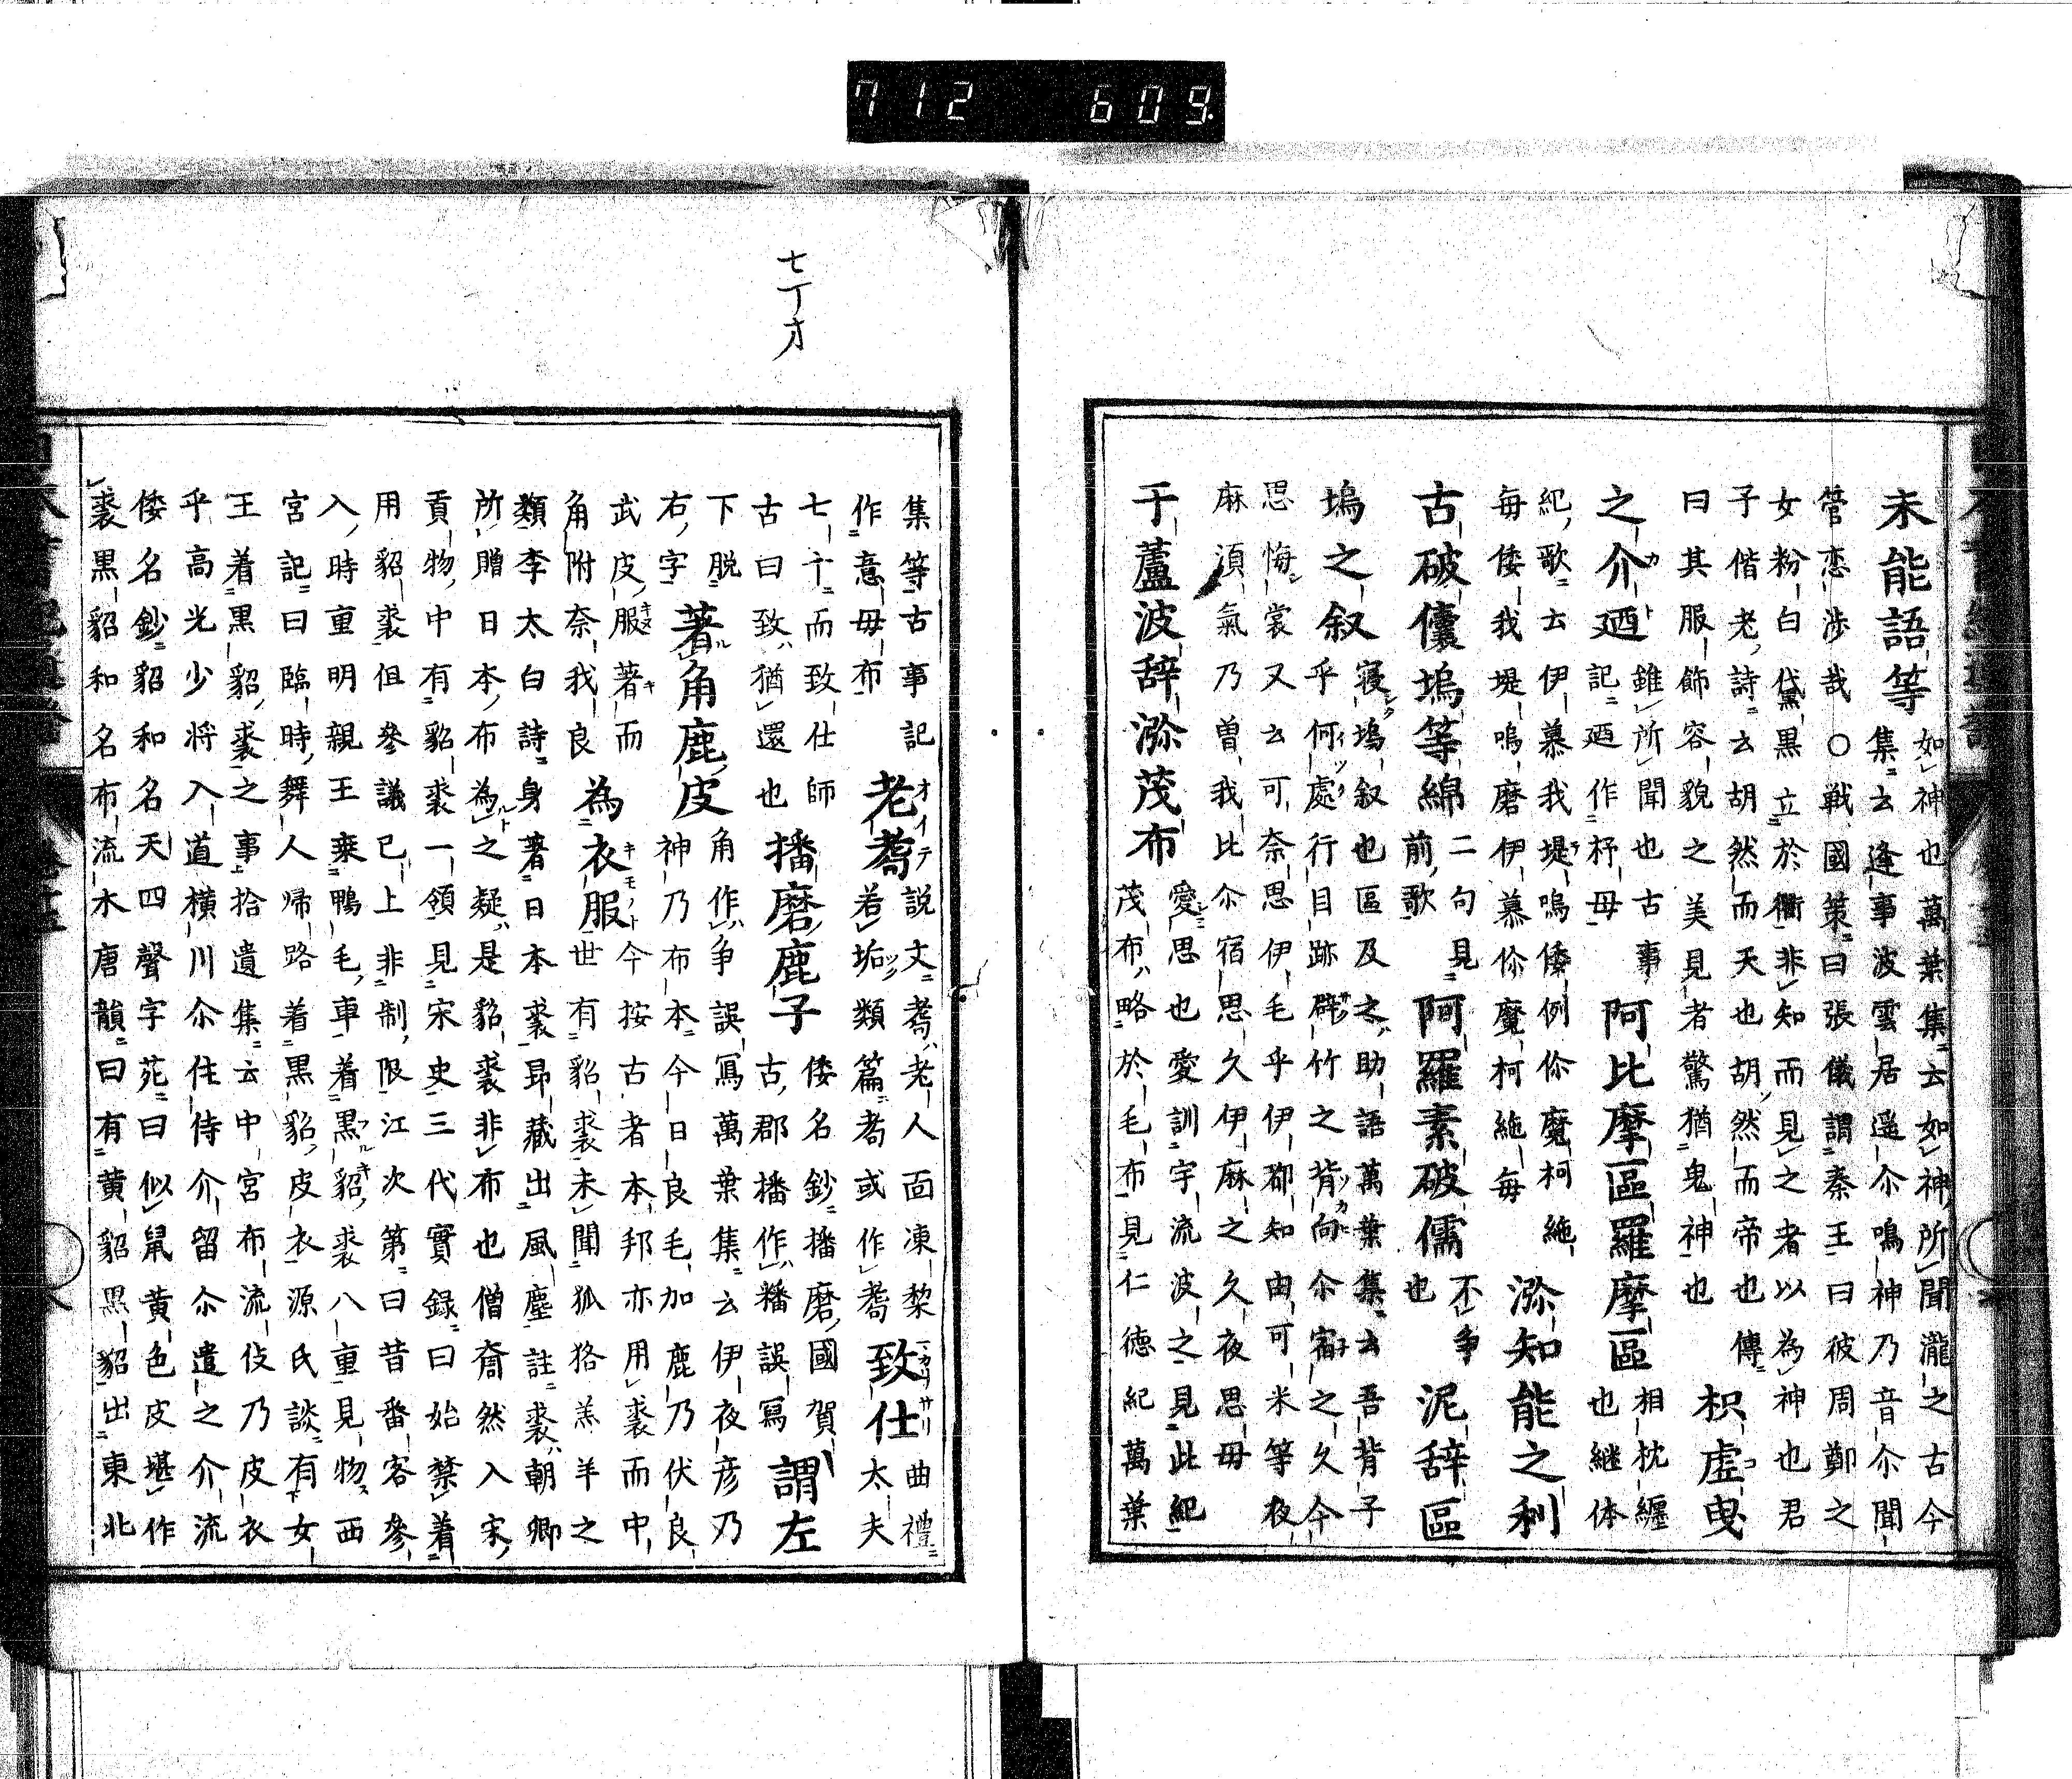 712 609.
如神也萬葉集云如神所聞瀧之古今
未能語等
集云逢事波雲居遥尒鳴神乃音尒聞
管恋渉哉○戦國策曰張儀謂秦王曰彼周鄭之
女粉白黛黒立於衢非知而見之者以為神也君
子偕老詩云胡然而天也胡然而帝也傳
曰其服飾容貌之美見者驚猶鬼神也
枳虚曳
之介迺
錐所聞也古事
記迺作杼毋
阿比摩區羅摩區
相枕纏
也継体
紀歌云伊慕我堤嗚倭例伱魔柯絁
毎倭我堤嗚磨伊慕伱魔柯絁毎
漈知能之利
古破儾塢等綿
二句見
前歌
阿羅素破儒
不争
也
泥辞區
塢之叙
寝塢叙也區及之助語萬葉集云吾背子
乎何處行目跡辟竹之背向尒宿之久今
思悔裳又云可奈思伊毛乎伊都知由可米等夜
麻須氣乃曽我比尒宿思久伊麻之久夜思毋
于蘆波辞漈茂布
愛思也愛訓宇流波之見此紀
茂布略於毛布見仁德紀萬葉
七丁オ
集等古事記
作意毋布
老耈
説文耈老人面凍黎
若垢類篇耈或作耇
致仕
曲禮
太夫
七十而致仕師
古曰致猶還也
播磨鹿子
倭名鈔播磨國賀
古郡播作糌誤冩
謂左
下脱
右字
著角鹿皮
角作争誤冩萬葉集云伊夜彦乃
神乃布本今日良毛加鹿乃伏良
武皮服著而
角附奈我良
為衣服
今按古者本邦亦用裘而中
世有貂裘未聞狐狢羔羊之
類李太白詩身著日本裘昂蔵出風塵註裘朝卿
所贈日本布為之疑是貂裘非布也僧奝然入宋
貢物中有貂裘一領見宋史三代實録曰始禁着
用貂裘但参議已上非制限江次第曰昔番客参
入時重明親王乗鴨毛車着黒貂裘八重見物西
宮記曰臨時舞人帰路着黒貂皮衣源氏談有女
王着黒貂裘之事拾遺集云中宮布流伎乃皮衣
乎高光少将入道横川尒住侍介留尒遣之介流
倭名鈔貂和名天四聲字苑曰似鼠黄色皮堪作
裘黒貂和名布流木唐韻曰有黄貂黒貂出東北